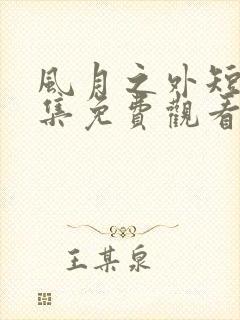 風月之外短
集免費觀看
王某泉